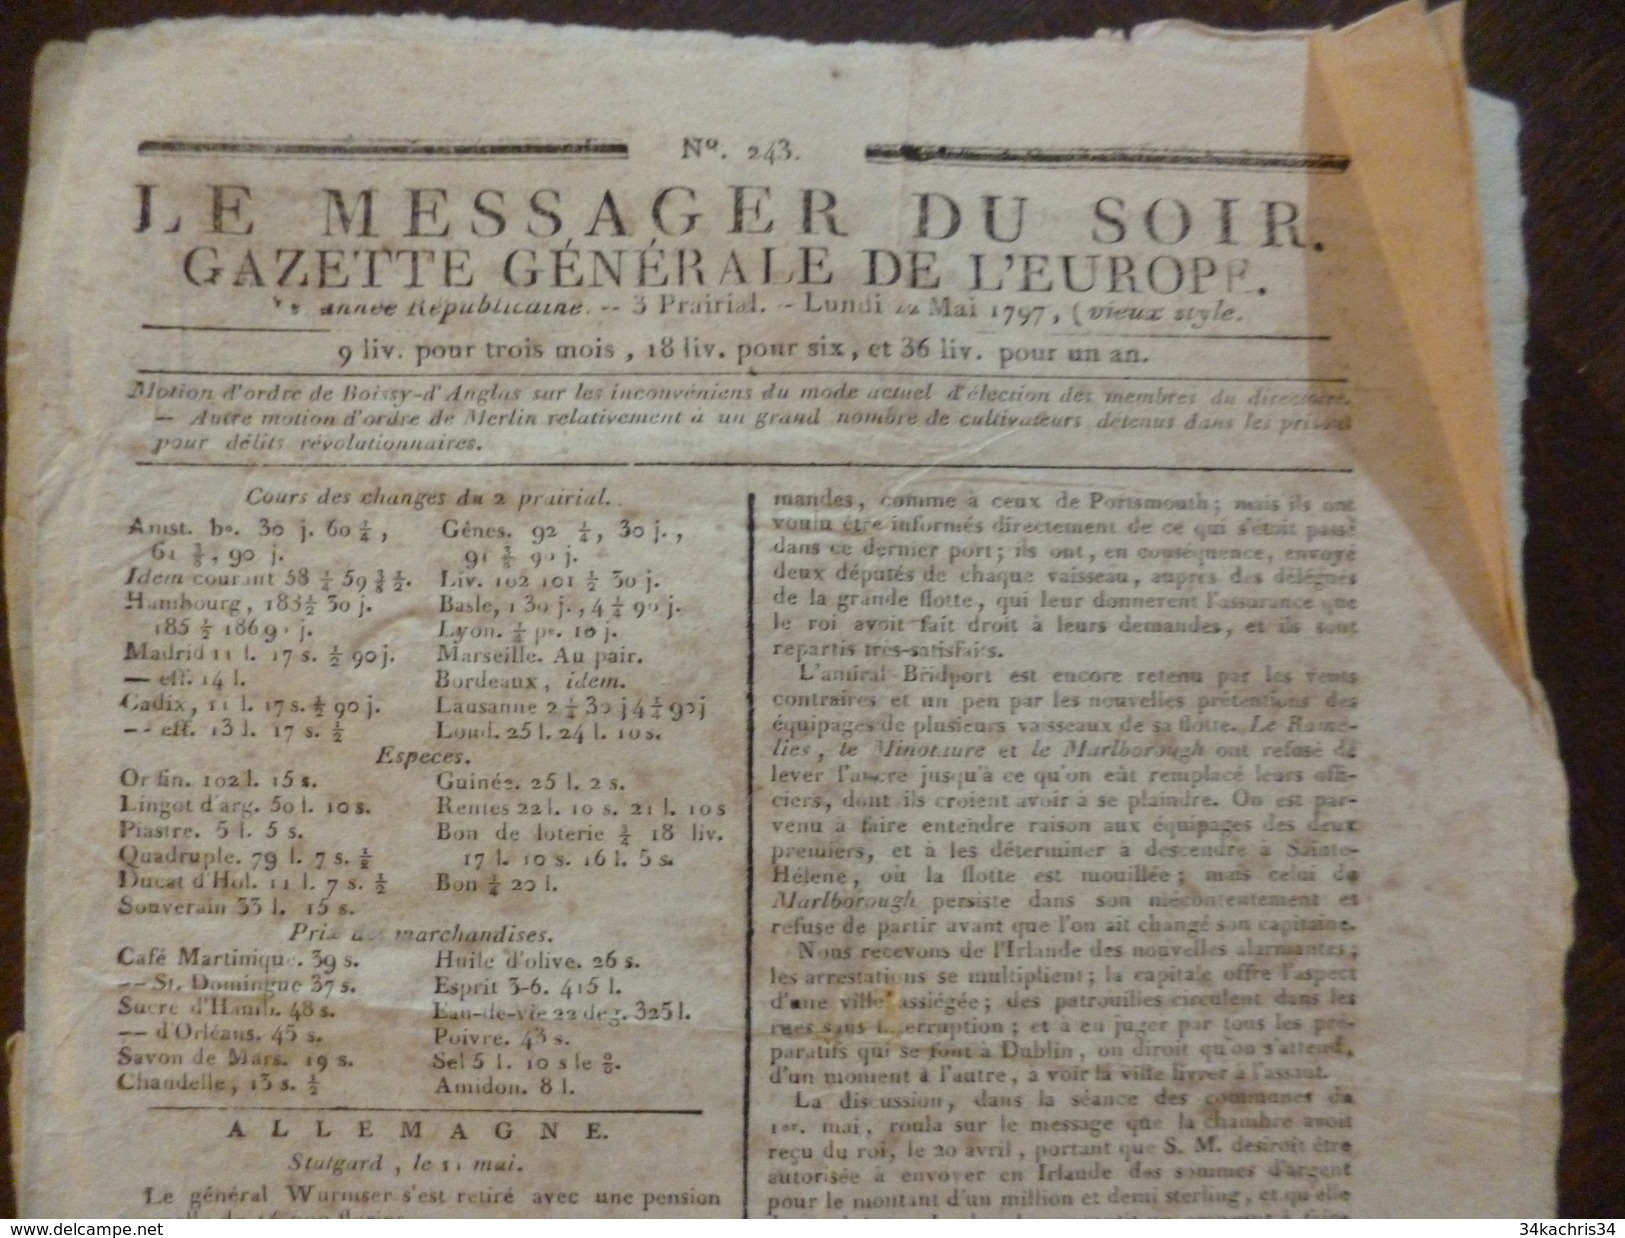 Nº. 243.
LE MESSAGER DU SOIR.
GAZETTE GÉNÉRALE DE L'EUROPE.
année Républicaine. -- 3 Prairial. -- Lundi 22 Mai 1797, (vieux style.
9 liv. pour trois mois, 18 liv. pour six, et 36 liv. pour un an.
Motion d'ordre de Boissy-d'Anglas sur les inconvéniens du mode actuel d'élection des membres du directoire.
— Autre motion d'ordre de Merlin relativement à un grand nombre de cultivateurs détenus dans les prisons
pour délits révolutionnaires.
Cours des changes du 2 prairial.
Amst. bo. 30 j. 60 ¼,
61 ⅜, 90 j.
Idem courant 58 ¼ 59 ⅜ ½.
Hambourg, 185½ 30 j.
185 ½ 186 90 j.
Madrid 11 l. 17 s. ½ 90 j.
— eff. 14 l.
Cadix, 11 l. 17 s. ½ 90 j.
-- eff. 13 l. 17 s. ½
Gênes. 92 ¼, 30 j.,
91 ⅜ 90 j.
Liv. 102 101 ½ 30 j.
Basle, 1 30 j., 4 ¼ 90 j.
Lyon. ½ pr. 10 j.
Marseille. Au pair.
Bordeaux, idem.
Lausanne 2 ¼ 30 j 4 ¼ 90 j
Lond. 25 l. 24 l. 10 s.
Especes.
Or fin. 102 l. 15 s.
Lingot d'arg. 50 l. 10 s.
Piastre. 5 l. 5 s.
Quadruple. 79 l. 7 s. ½
Ducat d'Hol. 11 l. 7 s. ½
Souverain 33 l. 15 s.
Guinée. 25 l. 2 s.
Rentes 22 l. 10 s. 21 l. 10 s
Bon de loterie ¾ 18 liv.
17 l. 10 s. 16 l. 5 s.
Bon ¼ 20 l.
Prix des marchandises.
Café Martinique. 39 s.
-- St. Domingue 37 s.
Sucre d'Hamb. 48 s.
-- d'Orléans. 45 s.
Savon de Mars. 19 s.
Chandelle, 13 s. ½
Huile d'olive. 26 s.
Esprit 3-6. 415 l.
Eau-de-vie 22 deg. 325 l.
Poivre. 43 s.
Sel 5 l. 10 s le %.
Amidon. 8 l.
ALLEMAGNE.
Stutgard, le 11 mai.
Le général Wurmser s'est retiré avec une pension
mandes, comme à ceux de Portsmouth; mais ils ont
voulu être informés directement de ce qui s'étoit passé
dans ce dernier port; ils ont, en conséquence, envoyé
deux députés de chaque vaisseau, auprès des délégués
de la grande flotte, qui leur donnerent l'assurance que
le roi avoit fait droit à leurs demandes, et ils sont
repartis très-satisfaits.
L'amiral Bridport est encore retenu par les vents
contraires et un peu par les nouvelles prétentions des
équipages de plusieurs vaisseaux de sa flotte. Le Ramé-
lies, le Minotaure et le Marlborough ont refusé de
lever l'ancre jusqu'à ce qu'on eût remplacé leurs offi-
ciers, dont ils croient avoir à se plaindre. On est par-
venu à faire entendre raison aux équipages des deux
premiers, et à les déterminer à descendre à Sainte-
Hélene, où la flotte est mouillée; mais celui du
Marlborough persiste dans son mécontentement et
refuse de partir avant que l'on ait changé son capitaine.
Nous recevons de l'Irlande des nouvelles alarmantes;
les arrestations se multiplient; la capitale offre l'aspect
d'une ville assiégée; des patrouilles circulent dans les
rues sans interruption; et à en juger par tous les pré-
paratifs qui se font à Dublin, on diroit qu'on s'attend,
d'un moment à l'autre, à voir la ville livrer à l'assaut.
La discussion, dans la séance des communes du
1er. mai, roula sur le message que la chambre avoit
reçu du roi, le 20 avril, portant que S. M. desiroit être
autorisée à envoyer en Irlande des sommes d'argent
pour le montant d'un million et demi sterling, et qu'elle
www.delcampe.net
34kachris34